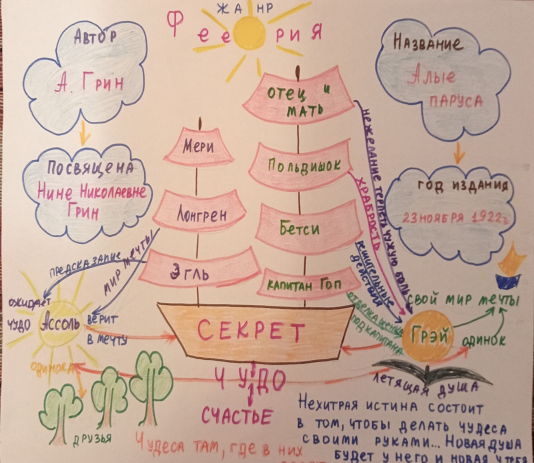 ЖАНР
Феерия
Автор
А. Грин
Название
Алые
паруса
Посвящена
Нине Николаевне
Грин
Год издания
23 ноября 1922г.
Отец и
мать
Мери
Польдишок
Лонгрен
Бетси
Эгль
Капитан Гоп
Секрет
нежелание терпеть чужую боль
храбрость
решительные
действия
под капитана
предсказание
мир мечты
ожидает
чудо
Ассоль
верит
в мечту
одинока
друзья
свой мир мечты
Грэй
одинок
летящая душа
Чудо
Счастье
Чудеса там, где в них
Нехитрая истина состоит
в том, чтобы делать чудеса
своими руками... Новая душа
будет у него и новая у тебя